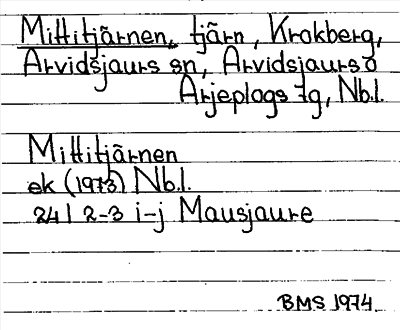 Mittitjärnen, tjärn, Krokberg,
Arvidsjaurs sn, Arvidsjaurs o
Arjeplogs tg, Nb.l.
Mittitjärnen
ek (1973) Nb.l.
24 I 2-3 i-j Mausjaure
BMS 1974